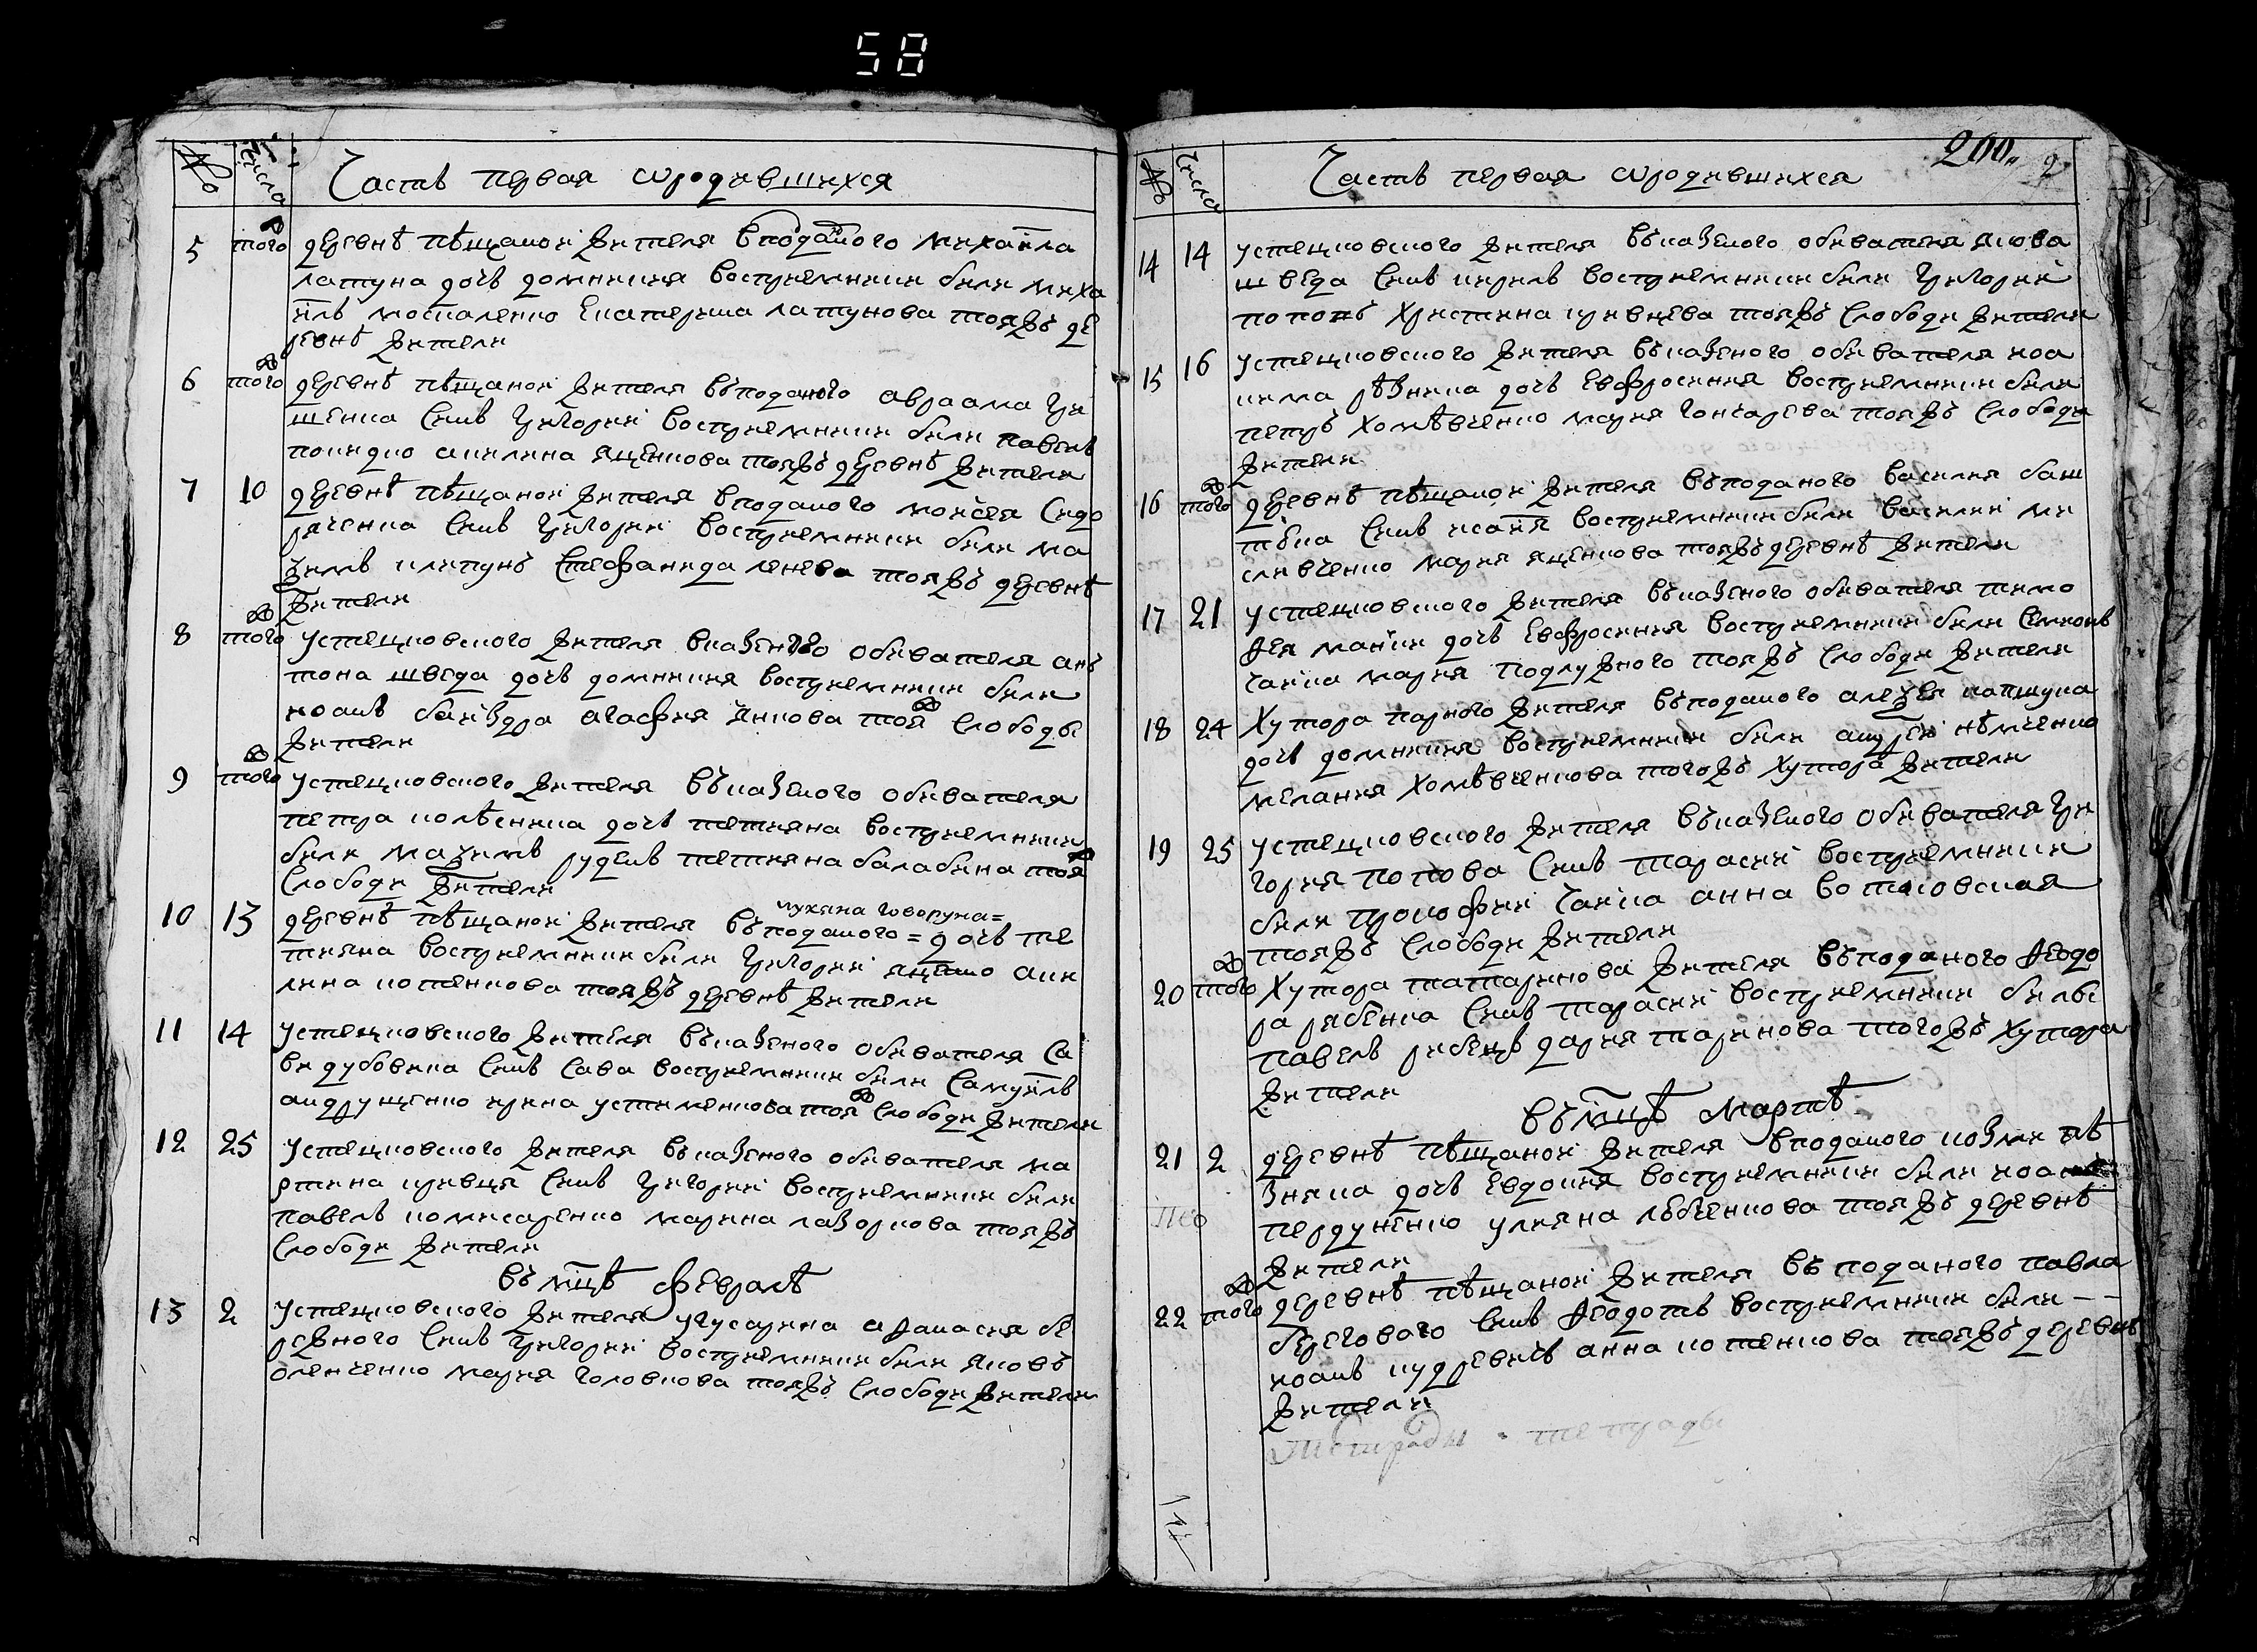 58
№ числа Часть первая ѡродившихся
5 тогож деревнѣ пѣщаной жителя вподаного михаила
латуна дочь домникия восприемники били миха
илъ москаленко Екатерина латунова тояжъ де
ревнѣ жители
6 тогож деревнѣ пѣщаной жителя въподаного авраама гри
шенка Синъ григорий восприемники били павелъ
покидко акилина яценкова тояжъ деревнѣ жители
7 10 деревнѣ пѣщаной жителя вподаного мойсея Сидо
ренка Синъ григорий восприемники били ма
ѯимъ клепунъ Стефанида ленева тояжъ деревнѣ
жители
8 тогож устецковского жителя вказеного обивателя анъ
тона шведа дочь домникия восприемники били
иоанъ байздра агафия янкова тояж Слободы
жители
9 тогож устецковского жителя въказеного обивателя
петра колѣсника дочь петияна восприемники
били маѯимъ руденъ тетияна балабина тояж
Слободи жители
10 13 деревнѣ пѣщаной жителя въподаного = дочь те
лукяна говоруна=
тияна восприемники били григорий яценко аки
лина котенкова тояжъ деревнѣ жители
11 14 устецковского жителя въказеного обивателя Са
ви дубовика Синъ Сава восприемники били Самуилъ
андрущенко ирина устименкова тояж Слободи жители
12 25 устецковского жителя въказеного обивателя ма
ртина кривця Синъ григорий восприемники били
павелъ комисаренко марина лазоркова тояжъ
Слободи жители
въ мцѣ февралѣ
13 2 устецковского жителя угусарина афанасия бе
режного Синъ григорий восприемники били яковъ
оленченко мария головкова тояжъ Слободи жители
200 2
№ числа Часть первая ѡродившихся
14 14 устецковского жителя въказеного обивателя якова
шведа Синъ кирилъ восприемники били григорий
попопъ христина кривцева тояжъ Слободи жители
15 16 устецковского жителя въказеного обивателя иоа
кима рѣзника дочь Евфросиния восприемники били
петръ хомѣвченко мария гончарева тояжъ Слободи
жители
16 тогож деревнѣ пѣщаной жителя въподаного василия баш
тѣка Синъ исаия восприемники били василий ми
сливченко мария яценкова тояжъ деревнѣ жители
17 21 устецковского жителя въказеного обивателя тимо
ѳея маник дочь Евфросиния восприемники били Симионъ
чайка мария подлужного тояжъ Слободи жители
18 24 хутора парного жителя въподаного алеѯея капшука
дочь домникия восприемники били андрей нѣмченко
мелания хомѣвченкова тогожъ хутора жители
19 25 устецковского жителя въказеного обивателя гри
гория попова Синъ тарасий восприемники
били прокофий чайка анна вотковская
тояжъ Слободи жители
20 тогож хутора татаринова жителя въподаного ѳеодо
ра рябенка Синъ тарасий восприемники билы
павелъ рибецъ дария таринова тогожъ хутора
жители
въ мцѣ мартѣ
21 2 деревнѣ пѣщаной жителя вподаного козми пѣ
зняка дочь Евдокия восприемники били иоанъ
пердуненко улияна лѣбченкова тояжъ деревнѣ
жители
22 тогож деревнѣ пѣщаной жителя въподаного павла
берегового Синъ ѳеодотъ восприемники били – –
иоанъ кудревичъ анна котенкова тояжъ деревнѣ
жители
тетради тетради